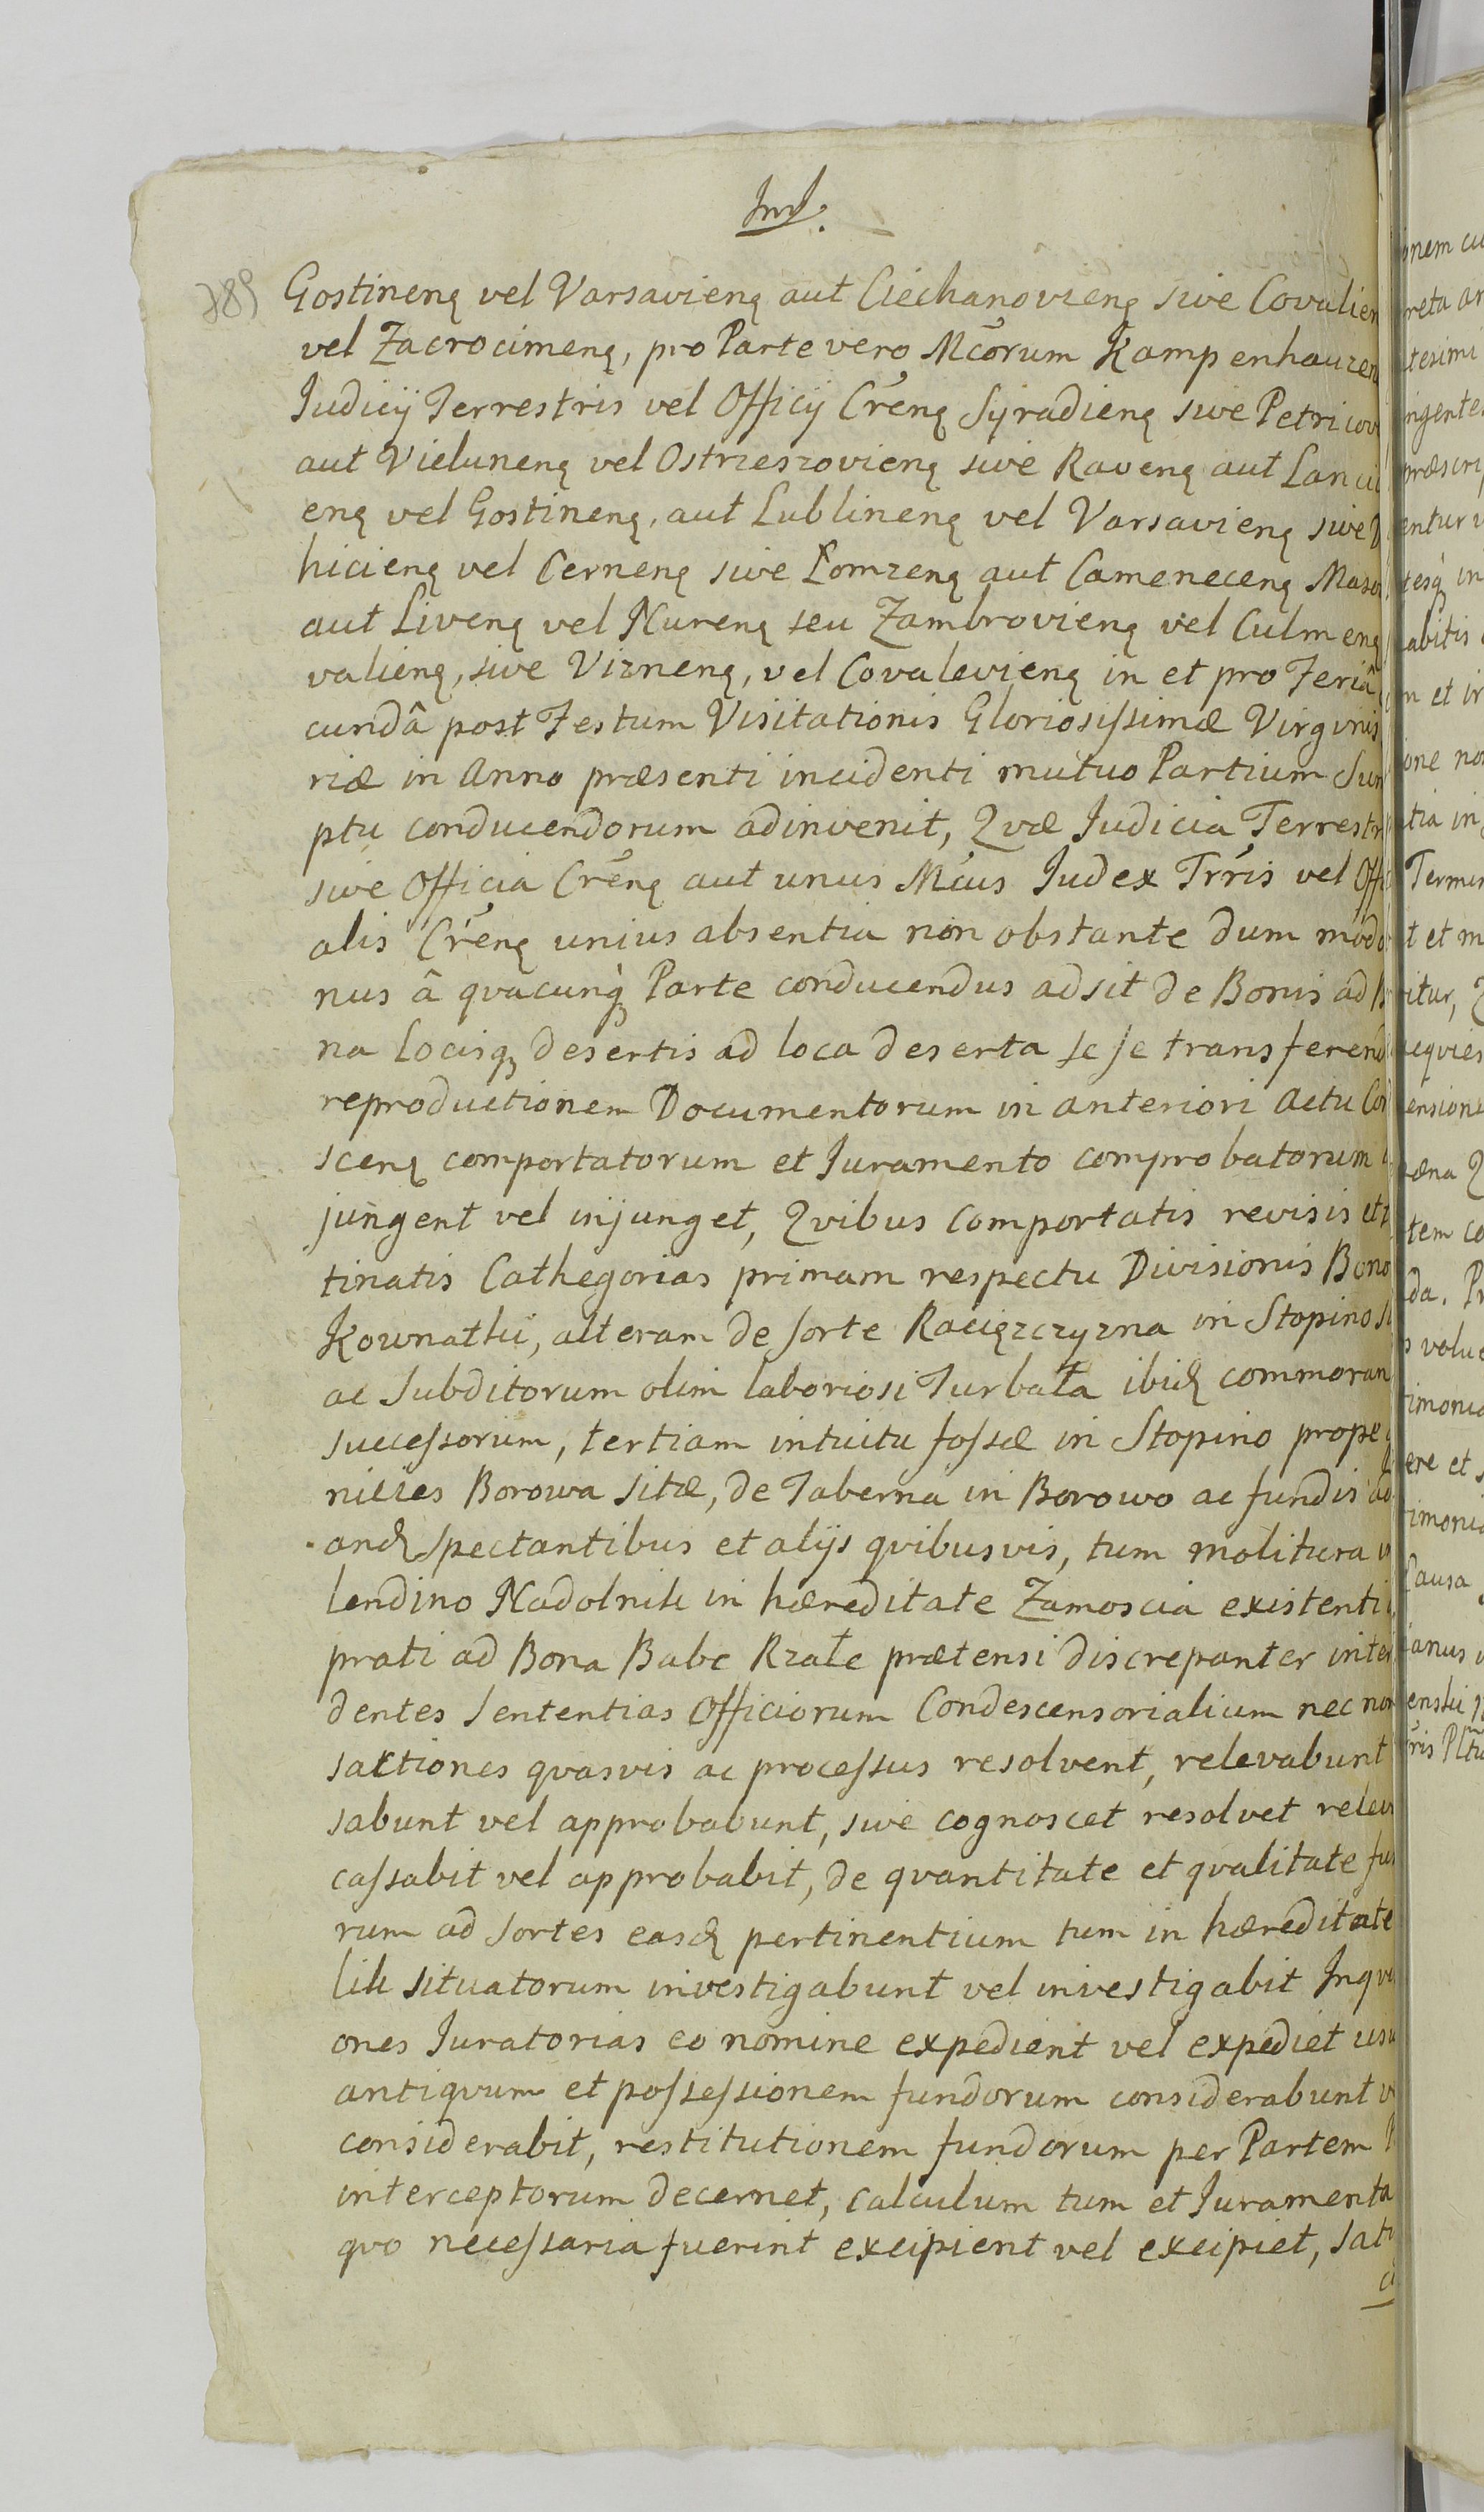 789
Gostineną vel Varsavieną aut Ciechanovieną sive Covalien
vel Zacrocimeną, pro Parte vero Mcõrum Kampenhauzen
Judicij Terrestris vel Officij Crẽną Syradieną sive Petricov
aut Vieluneną vel Ostrzeszovieną sive Raveną aut Lanci
eną vel Gostineną, aut Lublineną vel Varsavieną sive V
hicieną vel Cerneną sive Łomzeną aut Cameneceną Maso
aut Liveną vel Nureną seu Zambrovieną vel Culmeną
valieną, sive Vizneną, vel Covalevieną in et pro Feriâ
cundâ post Festum Visitationis Gloriosissimæ Virginis
riæ in Anno præsenti incidenti mutuo Partium Sum
ptu conducendorum adinvenit, Qvæ Judicia Terrestr
sive Officia Crẽną aut unus Mcus Judex Trr̃is vel Offi
alis Crẽną unius absentia non obstante dum modo
nus â qvacunq̀ Parte conducendus adsit de Bonis ad B
na Locisq desertis ad loca deserta se se transferend
reproductionem Documentorum in anteriori Actu Con
sceną comportatorum et Juramento comprobatorum
jungent vel injunget, Qvibus comportatis revisis et
tinatis Cathegorias primam respectu Divisionis Bono
Kownatki, alteram de sorte Racięzczyzna in Stopino
ac Subditorum olim laboriosi Turbała ibid commoran
successorum, tertiam intuitu fossæ in Stopino prope
nicies Borowa sitæ, de Taberna in Borowo ac fundis ad
and spectantibus et alijs qvibusvis, tum molitura
lendino Nadolnik in hæreditate Zamoscia existenti
prati ad Bona Babe Rzałe prætensi discrepanter inter
dentes Sententias Officiorum Condescensorialium nec non
sactiones qvasvis ac processus resolvent, relevabunt
sabunt vel approbabunt, sive cognoscet resolvet relev
cassabit vel approbabit, de qvantitate et qvalitate fun
rum ad sortes easd pertinentium tum in hæreditate
lik situatorum investigabunt vel investigabit Inqvi
ones Juratorias eo nomine expedient vel expediet usu
antiqvum et possessionem fundorum considerabunt v
considerabit, restitutionem fundorum per Partem
interceptorum decernet, calculum tum et Juramenta
qvo necessaria fuerint excipient vel excipiet, sati